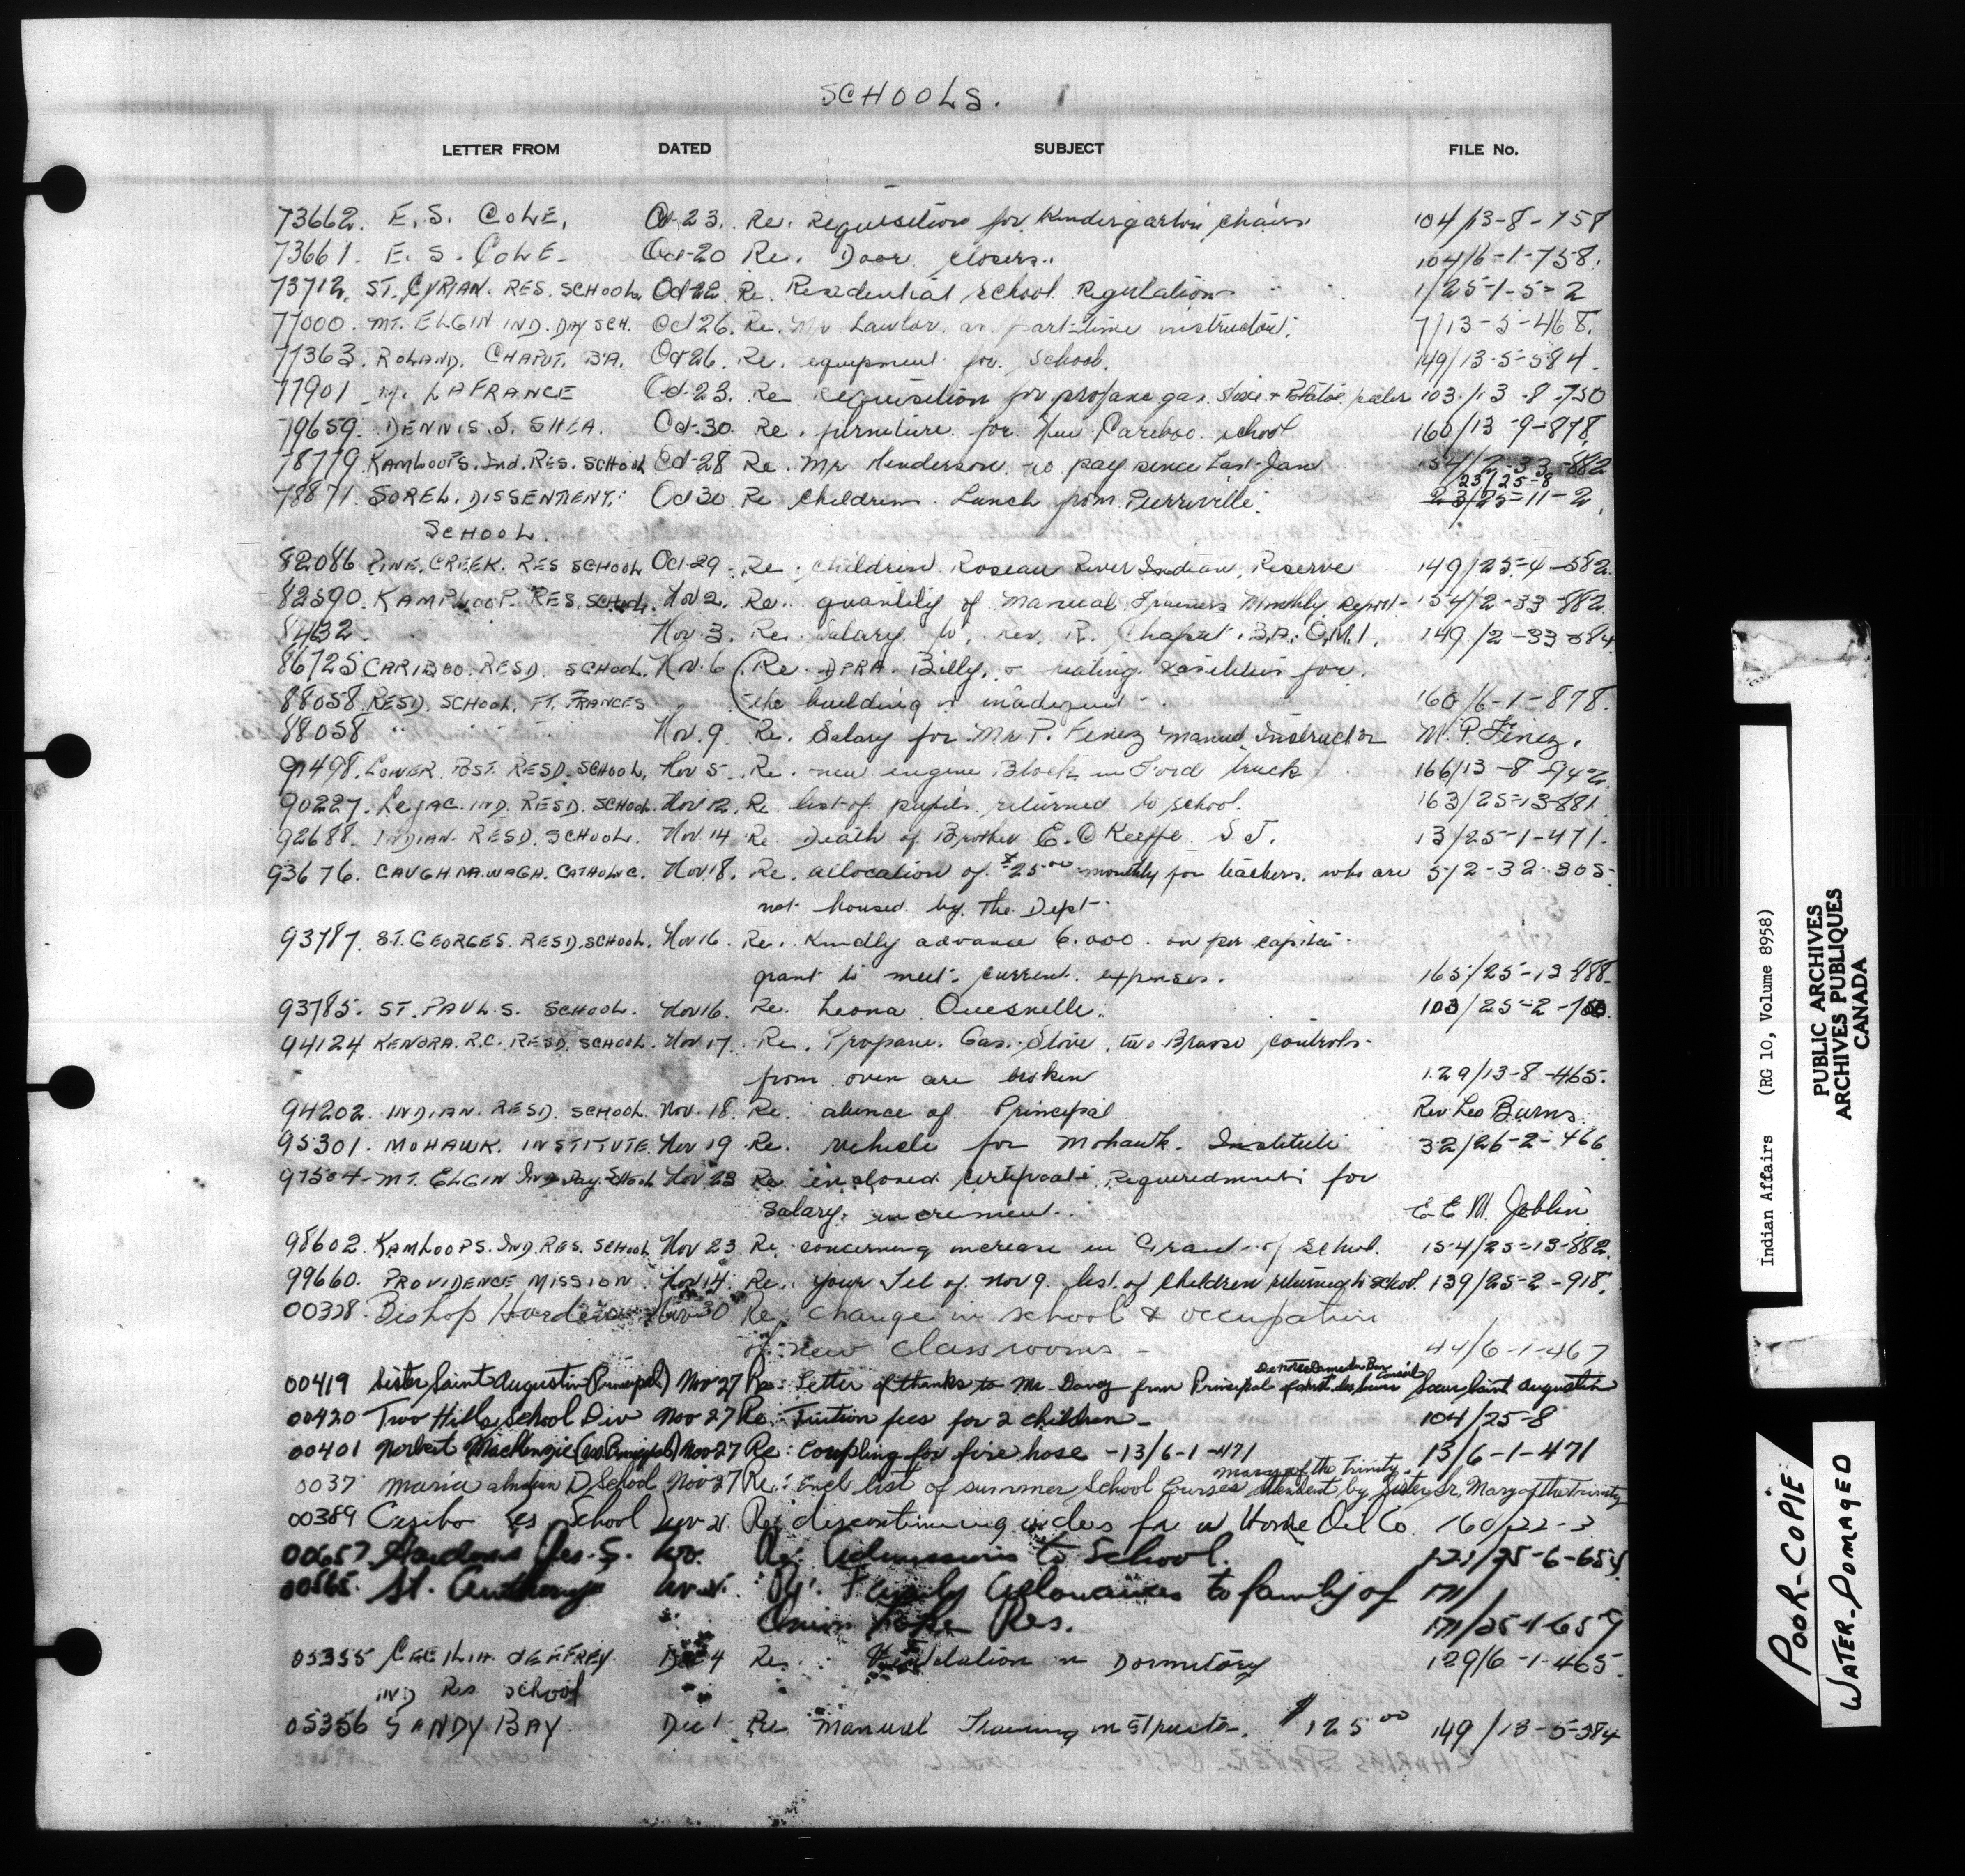 SCHOOLS.
LETTER FROM DATED SUBJECT FILE No.
73662. E. S. COLE. Oct-23. Re. Requisition for Kindergarten chairs 104/13-8-758
73661. E. S. COLE. Oct-20 Re. Door closers. 104/6-1-758.
73712. ST. CYPRIAN. RES. SCHOOL. Oct-22. Re. Residential school Regulations 1/25-1-5-2
77000. MT. ELGIN IND. DAY SCH. Oct 26. Re. Mr Lawlor as part-time instructor. 7/13-5-468.
77363. ROLAND. CHAPUT. B.A. Oct 26. Re. equipment for School. 149/13-5-584.
77901 LAFRANCE Oct-23. Re requisition for propane gas stove + Potatoe peeler 103/13-8-750
79659. DENNIS. J. SHEA. Oct-30. Re. furniture for New Cariboo school 160/13-9-878
78779. KAMLOOPS. Ind. RES. SCHOOL Oct-28 Re. Mr Henderson no pay since Last Jan 154/2-33-882
23/25-8
78871. SOREL. DISSENTIENT. Oct 30. Re children Lunch from 23/25-11-2.
SCHOOL.
82086 PINE. CREEK. RES SCHOOL Oct-29. Re. children Roseau River Indian Reserve 149/25-4-582.
82590. KAMPLOOP. RES. SCHOOL. Nov 2. Re. quantity of Manual Trainers Monthly Report- 154/2-33-882
Nov. 3. Re. Salary to. Rev. R. Chaput. B.A. O.M.I. 149/2-33-584
86725 CARIBOO. RESD. SCHOOL. Nov. 6 (Re. Billy, heating facilities for.
88058. RESD. SCHOOL. FT. FRANCES the building is inadequate 160/6-1-878.
88058 " Nov. 9 Re. Salary for Mr P. Fenez Manual Instructor M. P. Fenez.
91498. LOWER. POST. RESD. SCHOOL. Nov 5. Re. new engine Block in Ford truck 166/13-8-942
90227. LEJAC. IND. RESD. SCHOOL. Nov 12. Re. list of pupils returned to school. 163/25-13-881
92688. INDIAN. RESD. SCHOOL. Nov. 14 Re. Death of Brother E. O Keeffe. S. J. 13/25-1-471.
93676. CAUGHNAWAGH. CATHOLIC. Nov. 18. Re. allocation of $25.00 monthly for teachers. who are 5/2-32-305.
not housed by the Dept-
93787. ST. GEORGES. RESD. SCHOOL. Nov 16. Re. Kindly advance 6.000. on per capita
grant to meet. current. expenses. 165/25-13-888.
93785. ST. PAUL. S. SCHOOL. Nov 16. Re. Leona Quesnelle. 103/25-2-
94124 KENORA. R.C. RESD. SCHOOL. Nov. 17. Re. Propane. Gas. Stove, two controls-
from oven are broken 129/13-8-465.
94202. INDIAN. RESD. SCHOOL. Nov. 18. Re. absence of Principal Rev Leo Burns.
95301. MOHAWK. INSTITUTE. Nov 19. Re. vehicle for Mohawk. Institute 32/26-2-466
97504- MT. ELGIN Ind Day School Nov 23 Re. enclosed certificate Requiredments for
Salary. increment. E E M Joblin
98602. KAMLOOPS. IND. RES. SCHOOL. Nov 23. Re. concerning increase in Grant of School. 154/25-13-882.
99660. PROVIDENCE MISSION Nov 14. Re. your Tel of Nov 9. list of children returning to school. 139/25-2-918.
00328. Bishop Horden Nov 30 Re. change in school & occupation
of new classrooms - 44/6-1-467
00419 Sister Saint Augustin (Principal) Nov 27 Re: Letter of thanks to Mr. Davey from Principal Soeur Saint Augustin
00420 Two Hills School Div Nov 27 Re. Tuition fees for 2 children- 104/25-8
00401 Norbert MacKenzie Nov 27 Re: Coupling for fire hose -13/6-1-471 13/6-1-471
Mary of the Trinity
0037 Maria Indian D School Nov 27 Re: Encl list of summer School Courses attendent by Sister Sr. Mary of the Trinity
00389 School Re: discontinuing Oil Co. 160/22-3
00657 Gordons Res. S. Nov. Re: Admissions to School.
00565. St. Anthony Re: Family Allowances to family of 171/
Onion Lake Res. 171/25-1-659
05355 CECILIA JEFFREY Dec 4 Re. Ventilation in Dormitory 129/6-1-465.
IND Res School
05356 SANDY BAY. Dec 1. Re. Manual Training instructor. $125.00 149/13-5-584
Indian Affairs (RG 10, Volume 8958)
PUBLIC ARCHIVES
ARCHIVES PUBLIQUES
CANADA
POOR-COPIE
WATER-DOMAGED